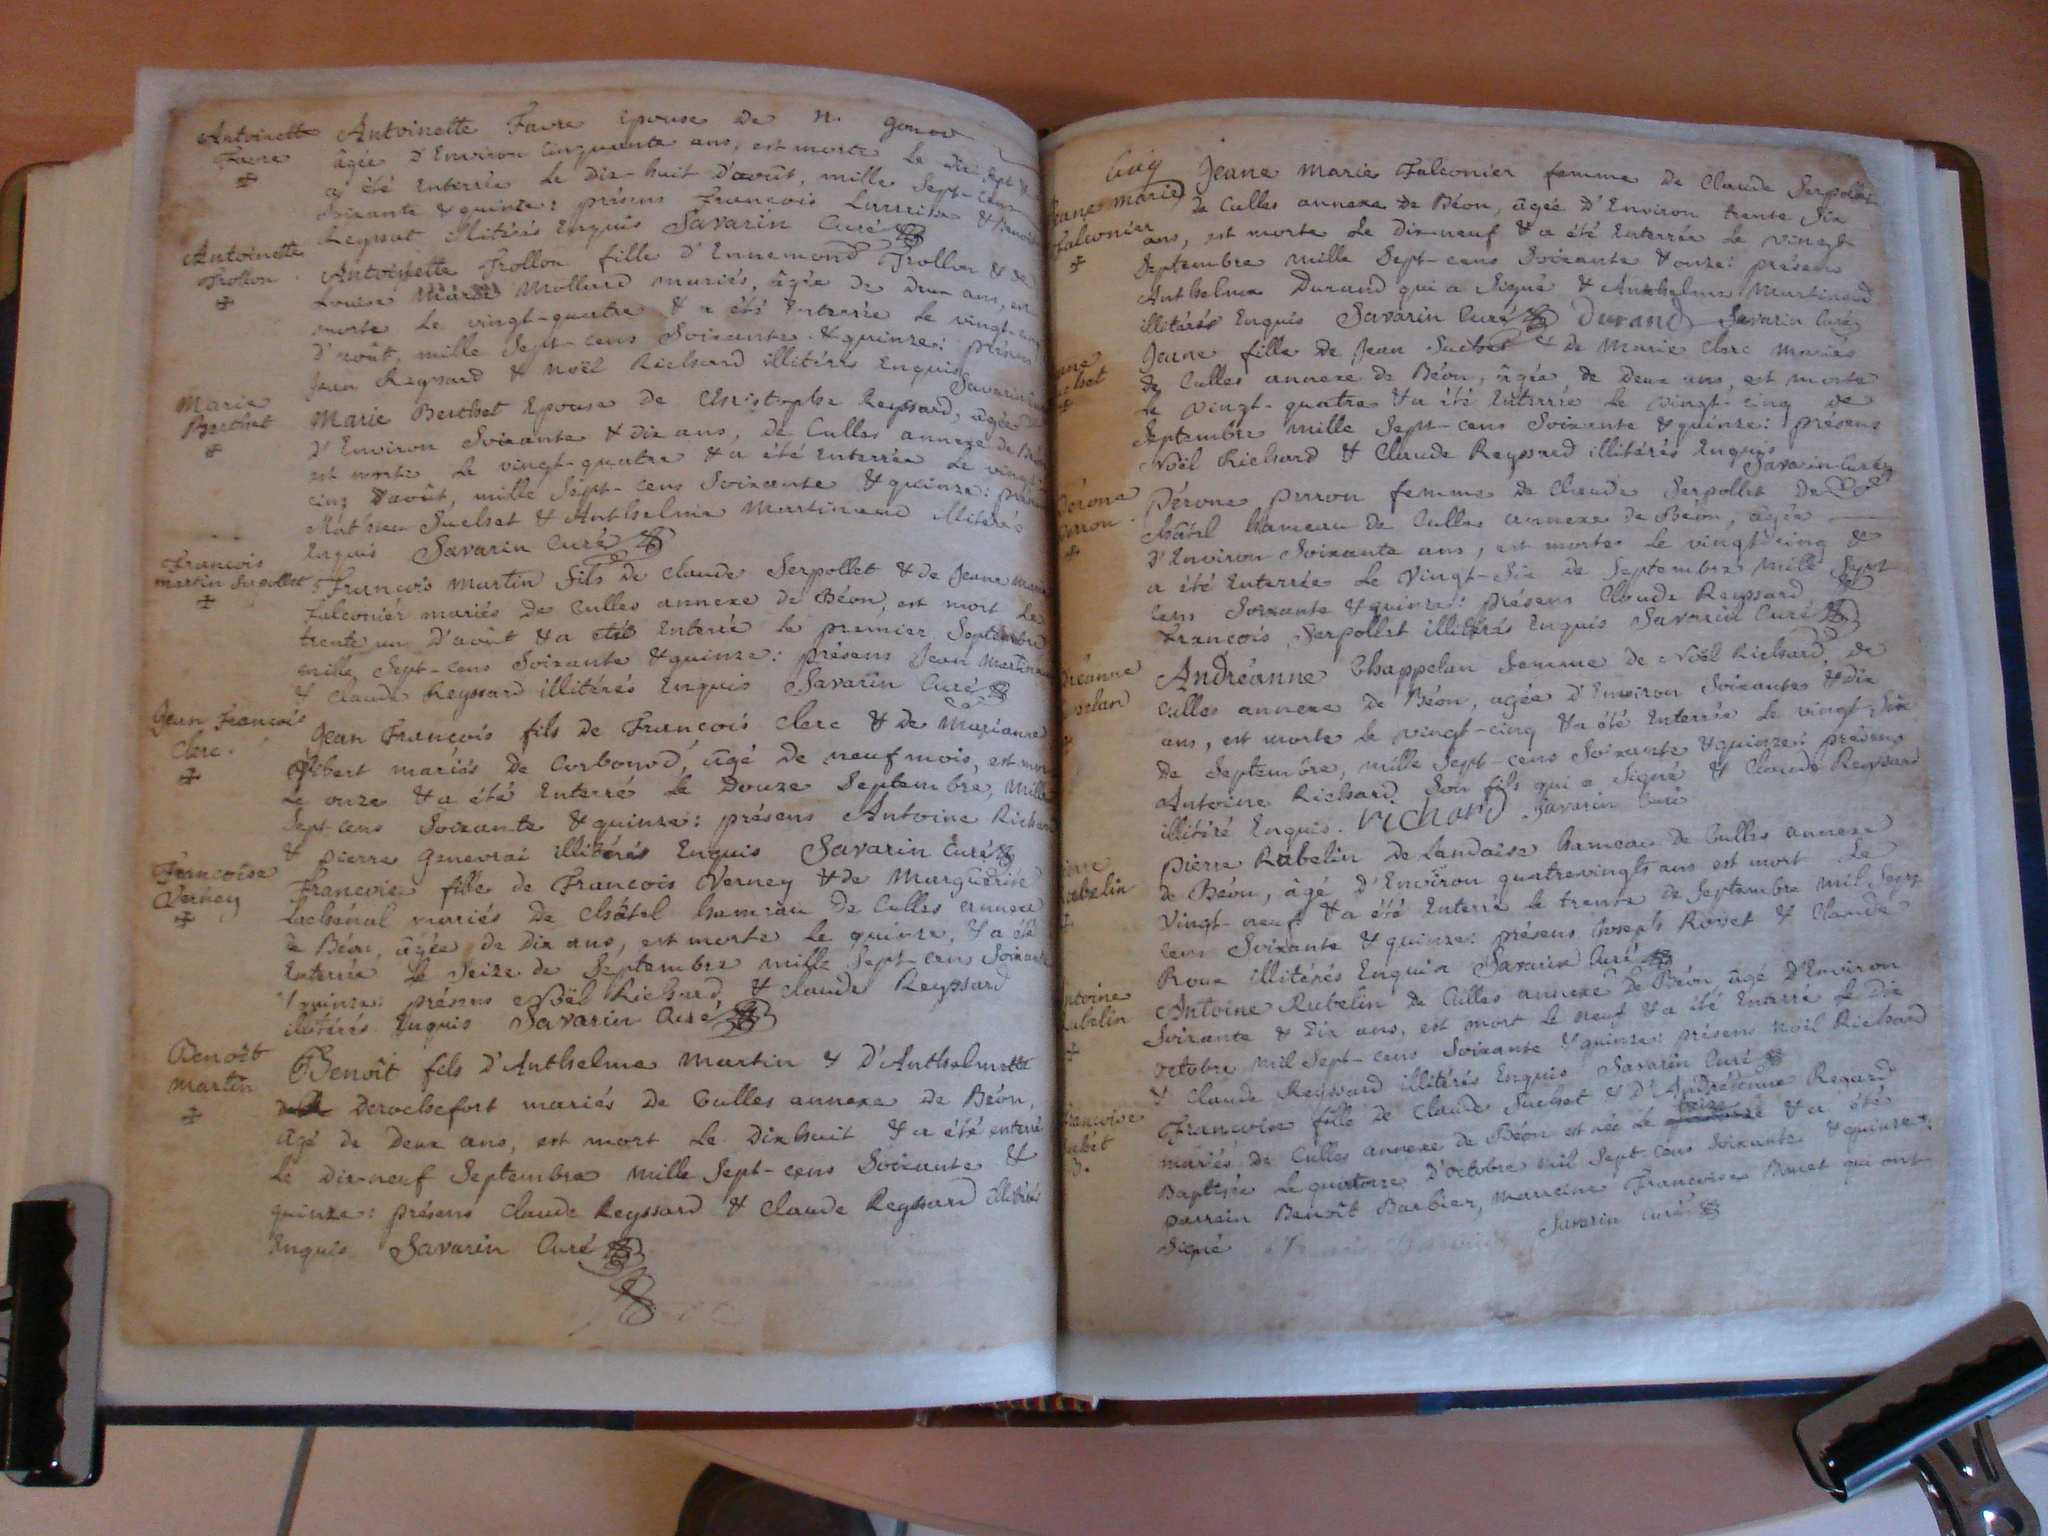 Antoinette
Favre
Antoinette Favre Epouse De N.
âgée D'Environ Cinquante ans, est morte Le Dix sept &
a été Enterrée Le Dix-huit D'août, mille Sept-cens
Soixante & quinze: présens François & Benoit
Illitérés Enquis Savarin Curé
Antoinette
Trollon
Antoinette Trollon fille D'Ennemond Trollon & de
Louise Mollard mariés, âgée de Deux ans, est
morte Le vingt-quatre & a été Enterrée Le vingt-cinq
D'août, mille Sept-cens Soixante & quinze: présens
Jean Reyssard & Noël Richard illitérés Enquis
Savarin
Marie
Berthet
Marie Berthet Epouse de Christophe Reyssard, âgée
D'Environ Soixante & Dix ans, De Culles annexe de Béon
est morte Le vingt-quatre & a été Enterrée Le vingt-
cinq D'août, mille Sept-cens Soixante & quinze: présens
Mathieu Suchet & Anthelme Martinand illitérés
Enquis Savarin Curé
François
martin Serpollet
François Martin fils De Claude Serpollet & de Jeane Marie
Falconier mariés De Culles annexe de Béon, est mort Le
trente un D'août & a été Enterré Le premier Septembre
mille Sept-cens Soixante & quinze: présens Jean Martinand
& Claude Reyssard illitérés Enquis Savarin Curé
Jean François
Clerc.
Jean François fils de François Clerc & de Marianne
mariés De Corbonod, âgé De neuf mois, est mort
Le onze & a été Enterré Le Douze Septembre, Mille
Sept-cens Soixante & quinze: présens Antoine Richard
& pierre Genevrai illitérés Enquis Savarin Curé
Françoise
Verney
Françoise fille de François Verney & de Marguerite
Lachénal mariés De Châtel hameau De Culles annexe
de Béon, âgée De Dix ans, est morte Le quinze, & a été
Enterrée Le Seize de Septembre mille Sept-cens Soixante
& quinze: présens Noël Richard, & Claude Reyssard
illitérés Enquis Savarin Curé
Benoît
Martin
Benoît fils D'Anthelme Martin & D'Anthelmette
Derochefort mariés De Culles annexe De Béon,
âgé de Deux ans, est mort Le Dixhuit & a été enterré
Le Dix-neuf Septembre mille Sept-cens Soixante &
quinze: présens Claude Reyssard & Claude Reyssard illitérés
Enquis Savarin Curé
Cinq
Jeane marie
Falconier
Jeane Marie Falconier femme De Claude Serpollet
De Culles annexe De Béon, âgée D'Environ trente Six
ans, est morte Le Dix-neuf & a été Enterrée Le vingt
Septembre mille Sept-cens Soixante & onze: présens
Anthelme Durand qui a Signé & Anthelme Martinand
illitérés Enquis Savarin Curé Durand Savarin Curé
Jeane fille De Jean Suchet & De Marie Clerc mariés
De Culles annexe De Béon, âgée De Deux ans, est morte
Le vingt-quatre & a été Enterrée Le vingt-cinq De
Septembre mille Sept-cens Soixante & quinze: présens
Noël Richard & Claude Reyssard illitérés Enquis
Savarin Curé
Pérone
Perron
Pérone Perron femme De Claude Serpollet De
Châtel hameau De Culles annexe de Béon, âgée
D'Environ Soixante ans, est morte Le vingt-cinq &
a été Enterrée Le Vingt-Six De Septembre Mille Sept
cens Soixante & quinze: présens Claude Reyssard &
François Serpollet illitérés Enquis Savarin Curé
Andréanne Chappelan femme De Noël Richard, de
Culles annexe De Béon, agée D'Environ Soixante & Dix
ans, est morte Le vingt-cinq & a été Enterrée Le vingt-Six
De Septembre, mille Sept-cens Soixante & quinze: présens
Antoine Richard Son fils qui a Signé & Claude Reyssard
illitéré Enquis. richard Savarin Curé
Rubelin
Pierre Rubelin De Landaise hameau De Culles annexe
De Béon, âgé D'Environ quatrevingts ans est mort Le
Vingt-neuf & a été Enterré Le trente De Septembre mil Sept
cens Soixante & quinze: présens Joseph Rosset & Claude
Roux illitérés Enquis Savarin Curé
Antoine
Rubelin
Antoine Rubelin De Culles annexe De Béon, âgé D'Environ
Soixante & Dix ans, est mort Le neuf & a été Enterré Le Dix
octobre mil Sept-cens Soixante & quinze: présens Noël Richard
& Claude Reyssard illitérés Enquis Savarin Curé
Françoise
Suchet
B.
Françoise fille De Claude Suchet & D'Andréanne Regard
mariés De Culles annexe De Béon est née Le treize & a été
Baptisée Le quatorze D'octobre mil Sept cens Soixante & quinze:
parrein Benoît Barbier, marreine Françoise Brunet qui ont
Signé Savarin Curé